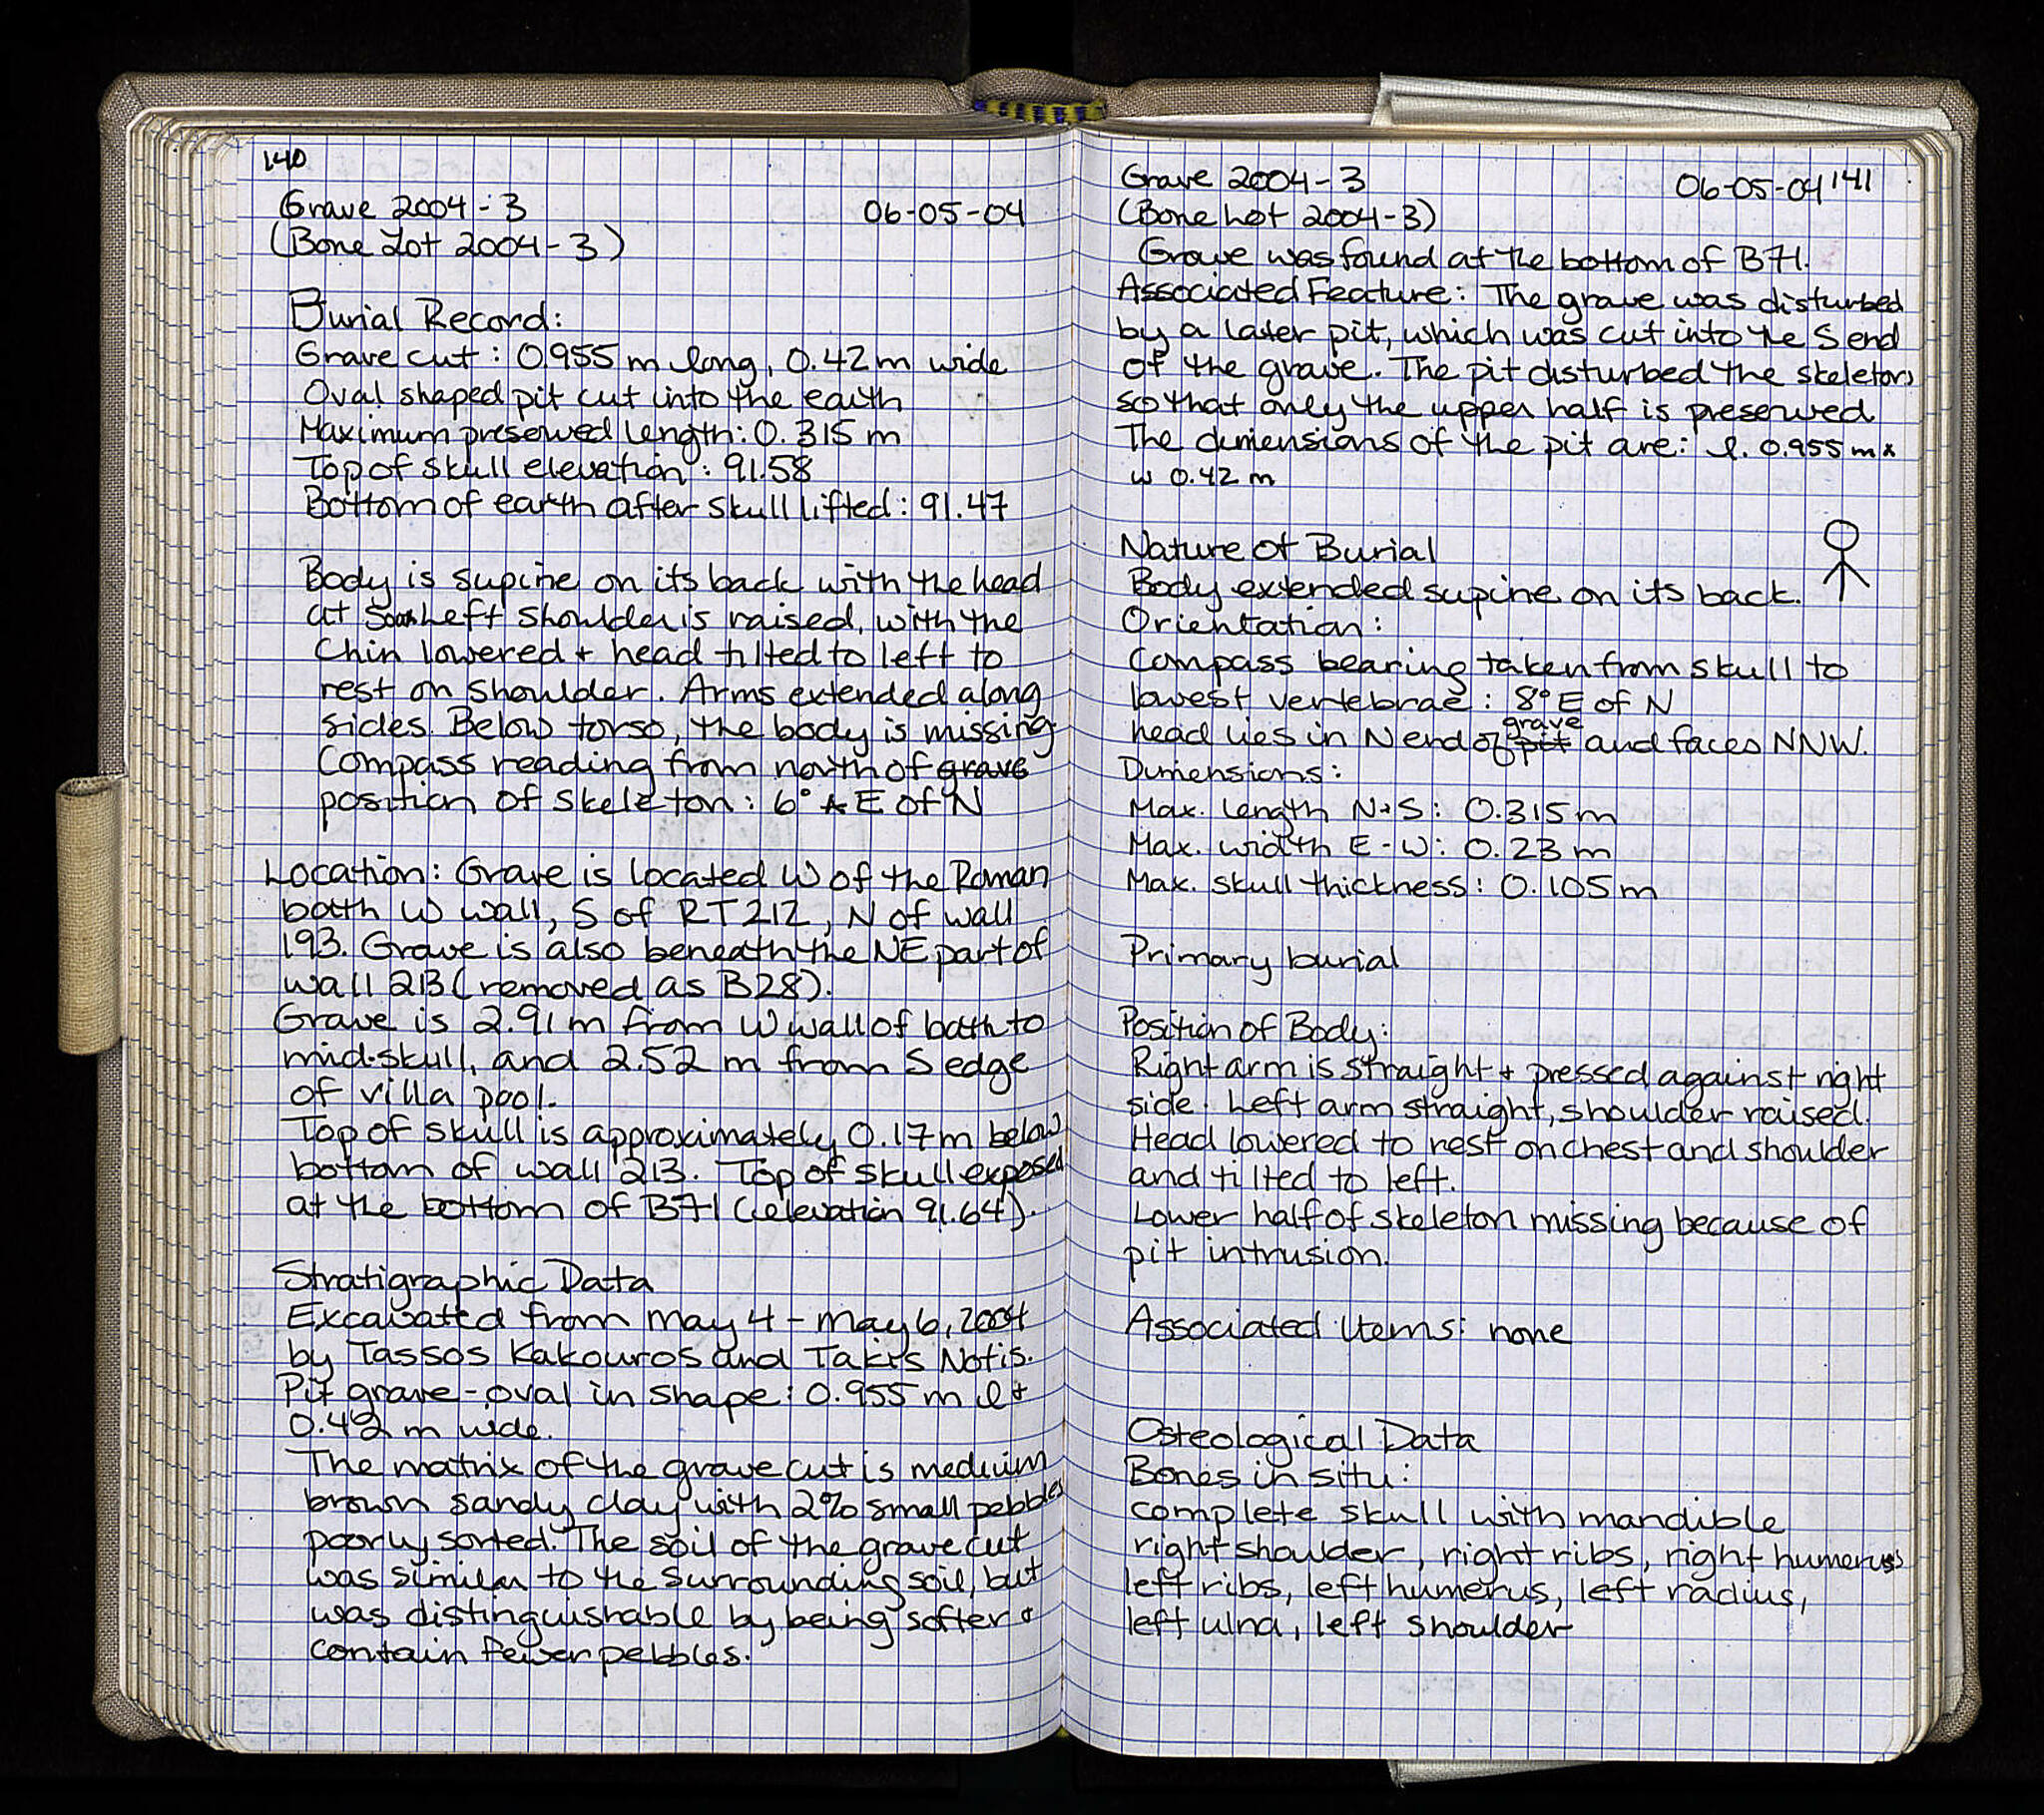 140
Grave 2004-3 06-05-04
(Bone Lot 2004-3)
Burial Record:
Grave cut: 0.955 m long, 0.42 m wide
Oval shaped pit cut into the earth
Maximum preserved length: 0.315 m
Top of skull elevation: 91.58
Bottom of earth after skull lifted: 91.47
Body is supine on its back with the head
at Left shoulder is raised, with the
chin lowered + head tilted to left to
rest on shoulder. Arms extended along
sides. Below torso, the body is missing
Compass reading from north of grave
position of skeleton: 6° E of N
Location: Grave is located W of the Roman
bath W wall, S of RT212, N of wall
193. Grave is also beneath the NE part of
wall 213 (removed as B28).
Grave is 2.91 m from W wall of bath to
mid-skull, and 2.52 m from S edge
of villa pool.
Top of skull is approximately 0.17 m below
bottom of wall 213. Top of skull exposed
at the bottom of B71 (elevation 91.64).
Stratigraphic Data
Excavated from May 4 - May 6, 2004
by Tassos Kakouros and Takis Notis.
Pit grave - oval in shape: 0.955 m l +
0.42 m wide.
The matrix of the grave cut is medium
brown sandy clay with 2% small pebbles
poorly sorted. The soil of the grave cut
was similar to the surrounding soil, but
was distinguishable by being softer +
contain fewer pebbles.
Grave 2004-3 06-05-04 141
(Bone Lot 2004-3)
Grave was found at the bottom of B71.
Associated Feature: The grave was disturbed
by a later pit, which was cut into the S end
of the grave. The pit disturbed the skeleton
so that only the upper half is preserved
The dimensions of the pit are: l. 0.955 m x
w 0.42 m
Nature of Burial
Body extended supine on its back.
Orientation:
Compass bearing taken from skull to
lowest vertebrae: 8° E of N
head lies in N end of pit grave and faces NNW.
Dimensions:
Max. length N-S: 0.315 m
Max. width E-W: 0.23 m
Max. skull thickness: 0.105 m
Primary burial
Position of Body:
Right arm is straight + pressed against right
side. Left arm straight, shoulder raised.
Head lowered to rest on chest and shoulder
and tilted to left.
Lower half of skeleton missing because of
pit intrusion.
Associated Items: none
Osteological Data
Bones in situ:
complete skull with mandible
right shoulder, right ribs, right humerus
left ribs, left humerus, left radius,
left ulna, left shoulder